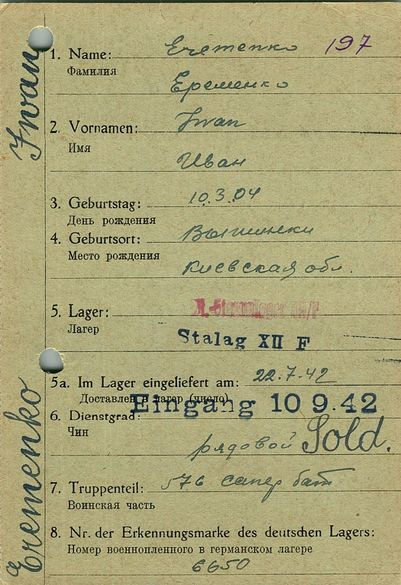 Iwan
Eremenko
1. Name: Еременко 197
Фамилия
Еременко
2. Vornamen: Iwan
Имя
Иван
3. Geburtstag: 10.3.04
День рождения
4. Geburtsort:
Место рождения
Киевская обл.
5. Lager:
Лагер
Stalag XII F
5a. Im Lager eingeliefert am: 22.7.42
Доставлен в лагер (число)
Eingang 10 9.42
6. Dienstgrad:
Чин
рядовой Sold.
7. Truppenteil: 576 сапер бат
Воинская часть
8. Nr. der Erkennungsmarke des deutschen Lagers:
Номер военнопленного в германском лагере
6650